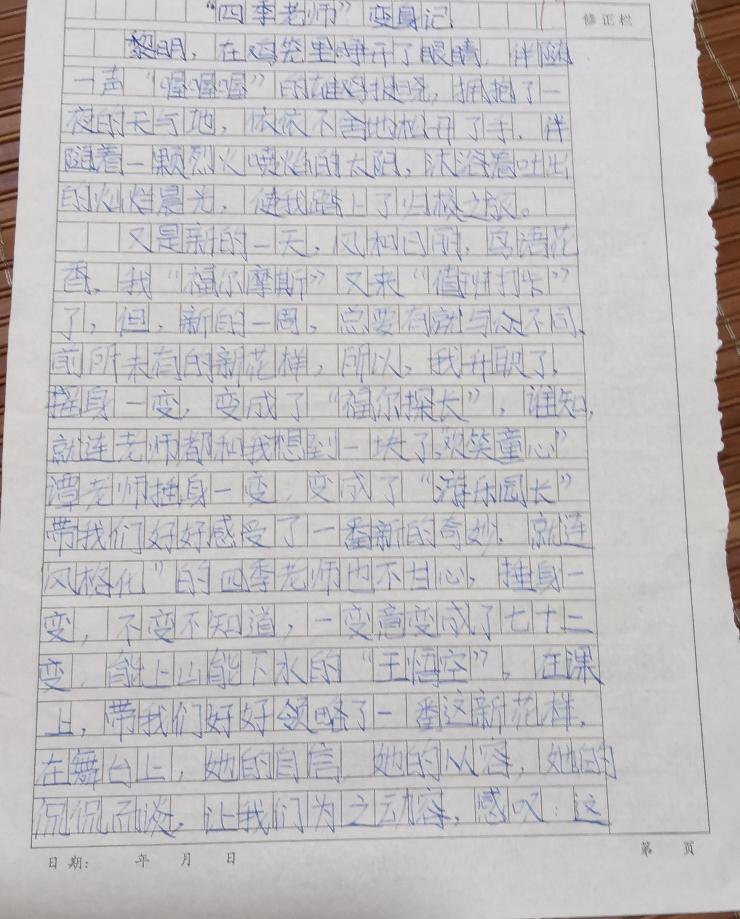 “四季老师”变身记
修正栏
黎明，在鸡笼里睁开了眼睛，伴随
一声“喔喔喔”的雄鸡报晓，拥抱了一
夜的天与地，依依不舍地松开了手，伴
随着一颗烈火喷焰的太阳，沐浴着吐出
的灿烂晨光，使我踏上了归校之旅。
又是新的一天，风和日丽，鸟语花
香，我“福尔摩斯”又来“值班打卡”
了，但，新的一周，总要有就与众不同、
前所未有的新花样，所以，我升职了，
摇身一变，变成了“福尔探长”，谁知，
就连老师都和我想到一块了，欢笑童心”
谭老师摇身一变，变成了“游乐园长”
带我们好好感受了一番新的奇妙，就连
风格化”的四季老师也不甘心，摇身一
变，不变不知道，一变竟变成了七十二
变，能上山能下水的“王悟空”。在课
上，带我们好好领略了一番这新花样，
在舞台上，她的自信，她的从容，她的
侃侃而谈，让我们为之动容，感叹：这
日期： 年 月 日
第 页